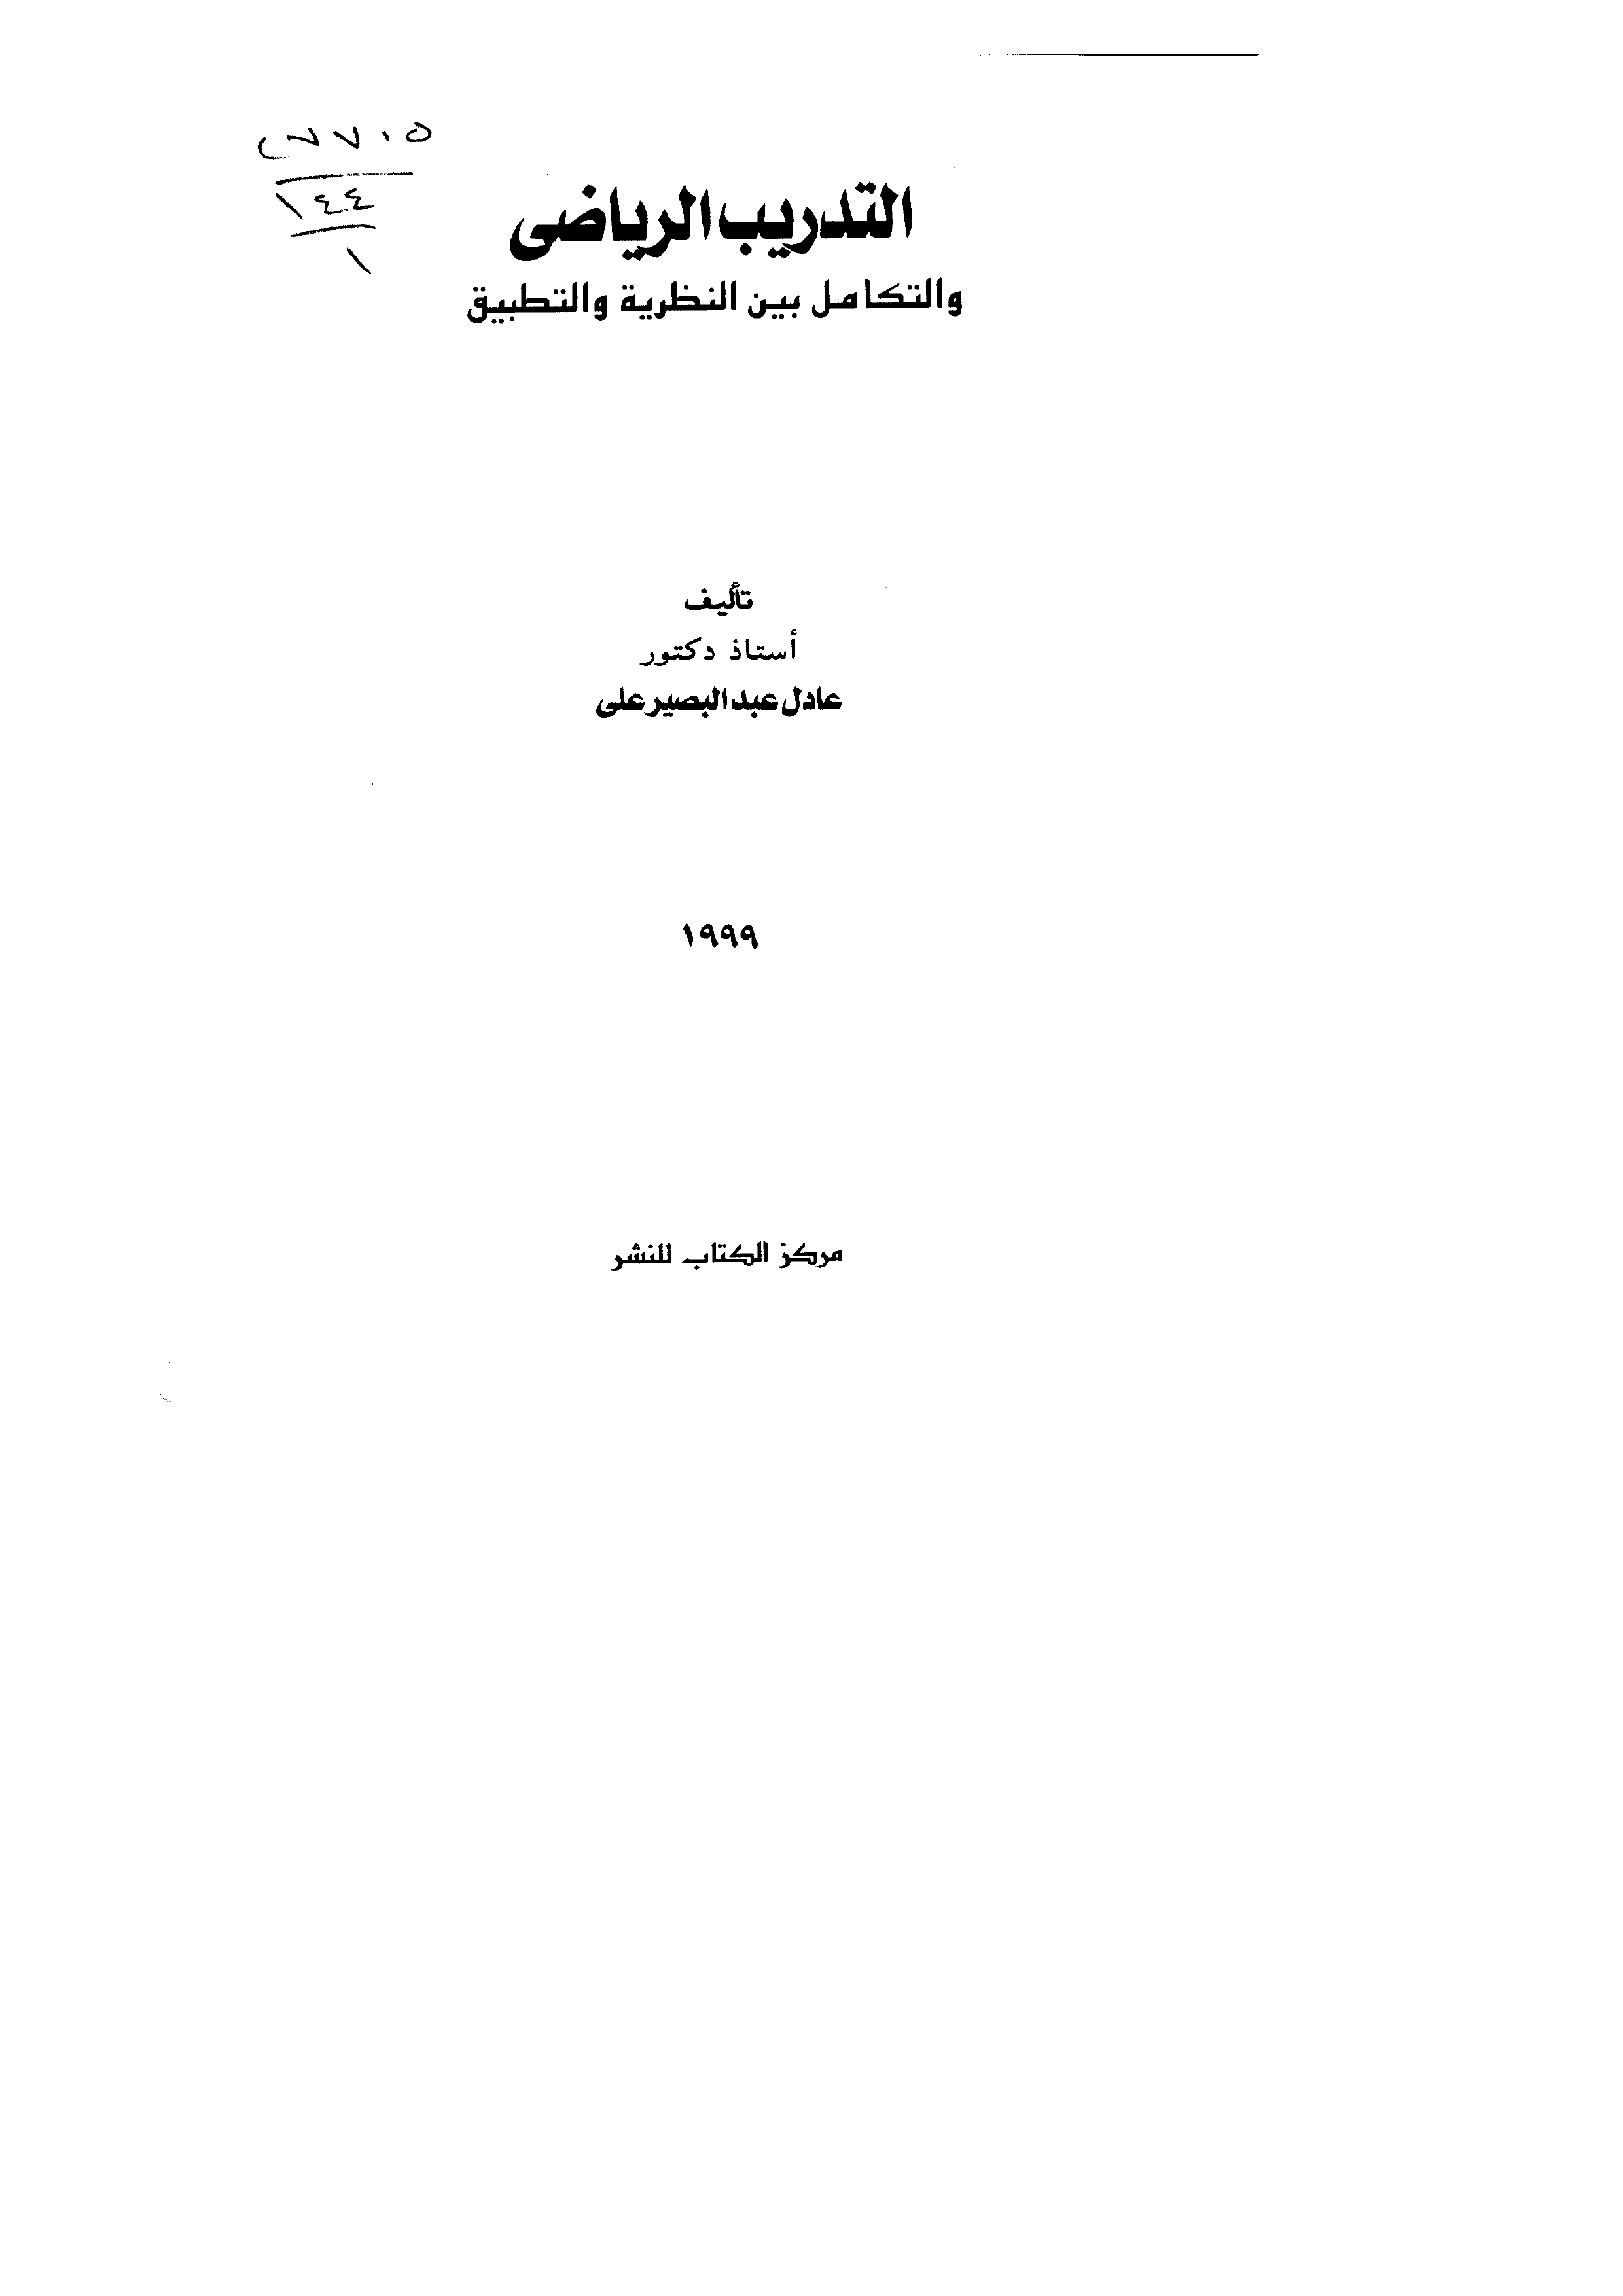 ٢٦٧٠٥
١٤٤
١
التدريب الرياضى
والتكامل بين النظرية والتطبيق
تأليف
أستاذ دكتور
عادل عبد البصير على
١٩٩٩
مركز الكتاب للنشر